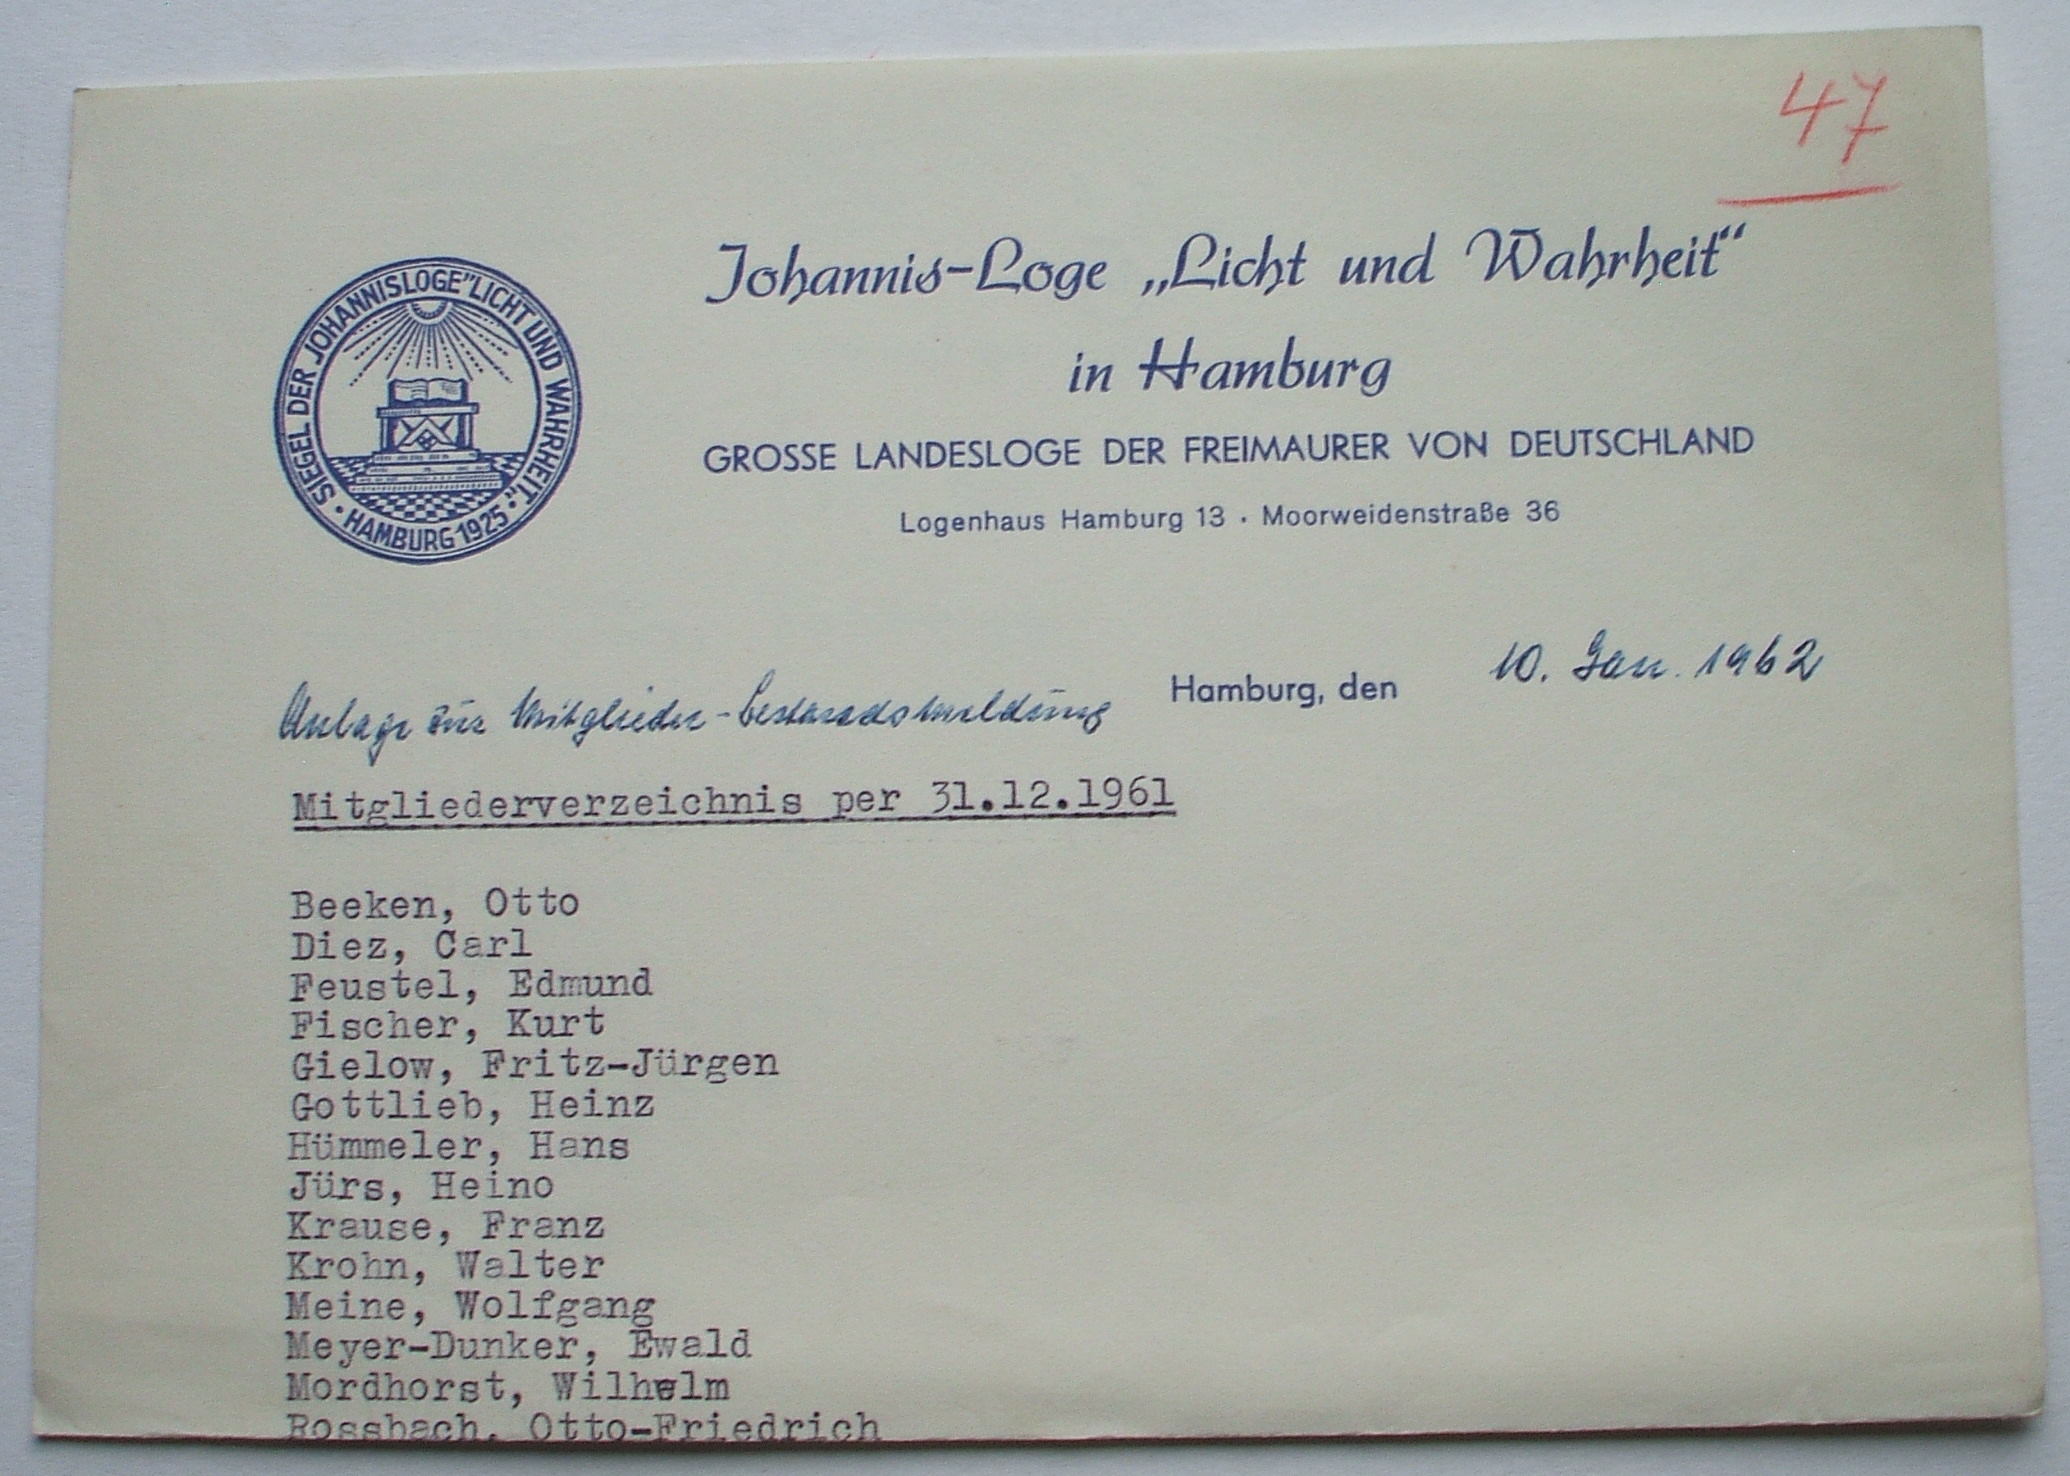 47
Johannis-Loge „Licht und Wahrheit“
in Hamburg
GROSSE LANDESLOGE DER FREIMAURER VON DEUTSCHLAND
Logenhaus Hamburg 13 · Moorweidenstraße 36
SIEGEL DER JOHANNISLOGE "LICHT UND WAHRHEIT„
· HAMBURG 1925 ·
Hamburg, den 10. Jan. 1962
Anlage zur Mitglieder-Bestandsmeldung
Mitgliederverzeichnis per 31.12.1961
Beeken, Otto
Diez, Carl
Feustel, Edmund
Fischer, Kurt
Gielow, Fritz-Jürgen
Gottlieb, Heinz
Hümmeler, Hans
Jürs, Heino
Krause, Franz
Krohn, Walter
Meine, Wolfgang
Meyer-Dunker, Ewald
Mordhorst, Wilhelm
Rossbach, Otto-Friedrich